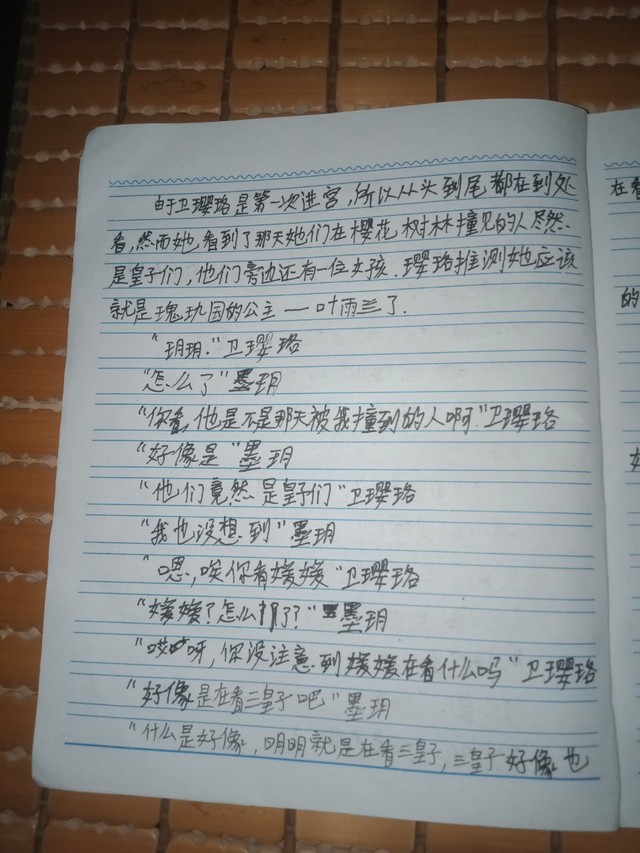 由于卫璎珞是第一次进宫,所以从头到尾都在到处
看,然而她看到了那天她们在樱花树林撞见的人尽然
是皇子们,他们旁边还有一位女孩.璎珞推测她应该
就是瑰玖园的公主一叶雨兰了.
"玥玥."卫璎珞
"怎么了"墨玥
"你看,他是不是那天被我撞到的人啊."卫璎珞
"好像是"墨玥
"他们竟然是皇子们"卫璎珞
"我也没想到"墨玥
"嗯,唉你看媛媛"卫璎珞
"媛媛?怎么了?"墨玥
"哎呀,你没注意到媛媛在看什么吗"卫璎珞
"好像是在看三皇子吧"墨玥
"什么是好像,明明就是在看三皇子,三皇子好像也
在看
的
好